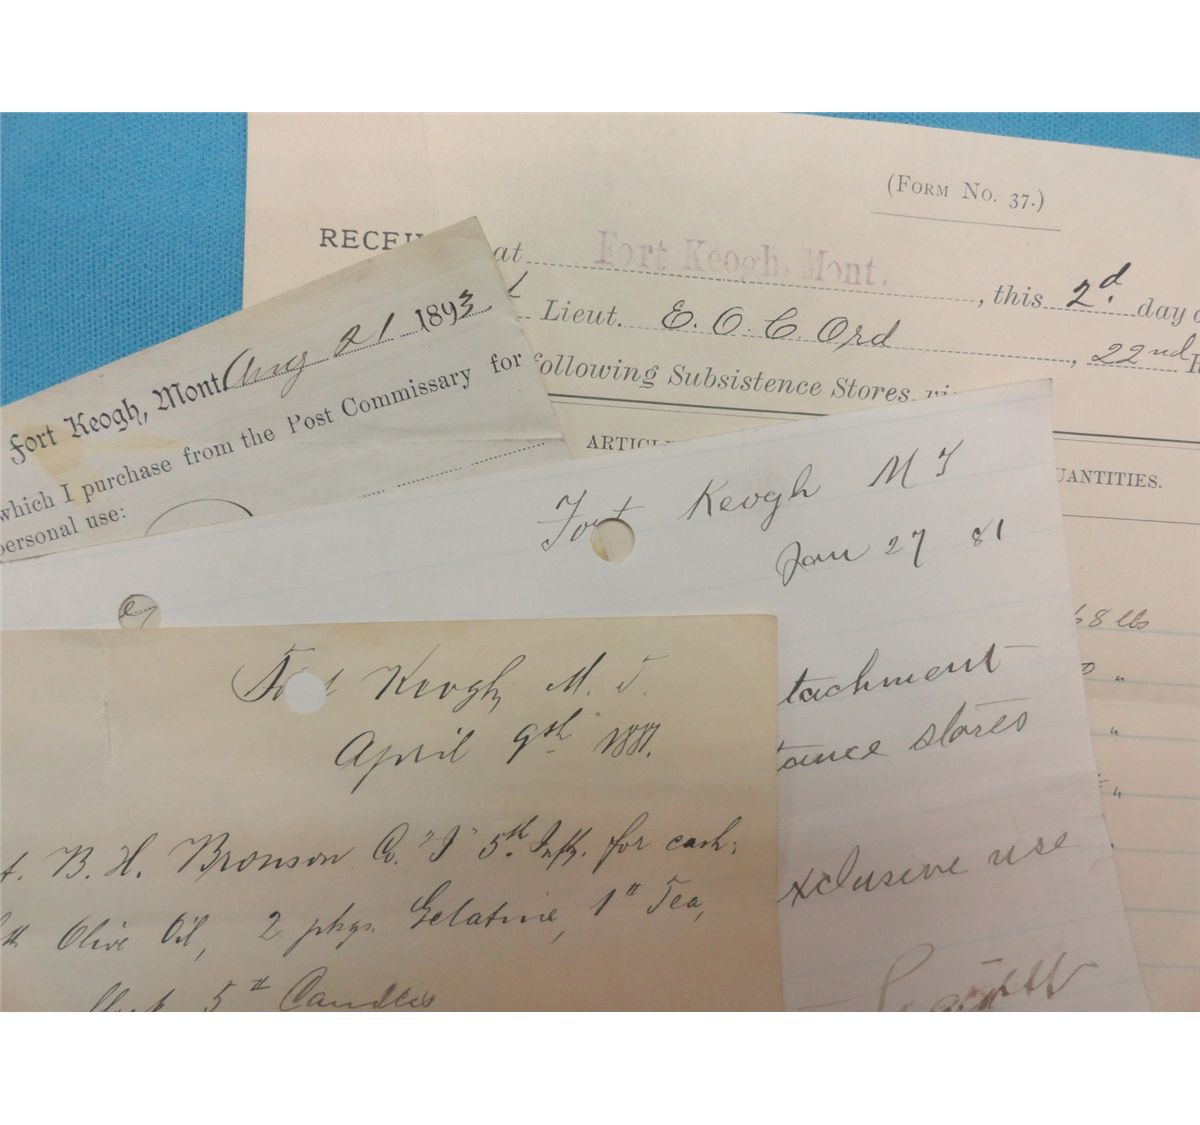 (FORM NO. 37.)
RECEI at Fort Keogh, Mont. , this 2d. day o
Lieut. E. O. C. Ord , 22nd R
following Subsistence Stores, vi
ARTICL UANTITIES.
68 lbs
"
"
"
Fort Keogh, Mont Aug 21 1893
which I purchase from the Post Commissary for
personal use:
Fort Keogh M T
Jan 27 81
tachment
tance stores
xclusive use
Fort Keogh, M. T.
April 9th 1881.
t. B. H. Bronson Co. "I" 5th Infty. for cash:
Olive Oil, 2 pkgs. Gelatine, 1# Tea,
5# Candles